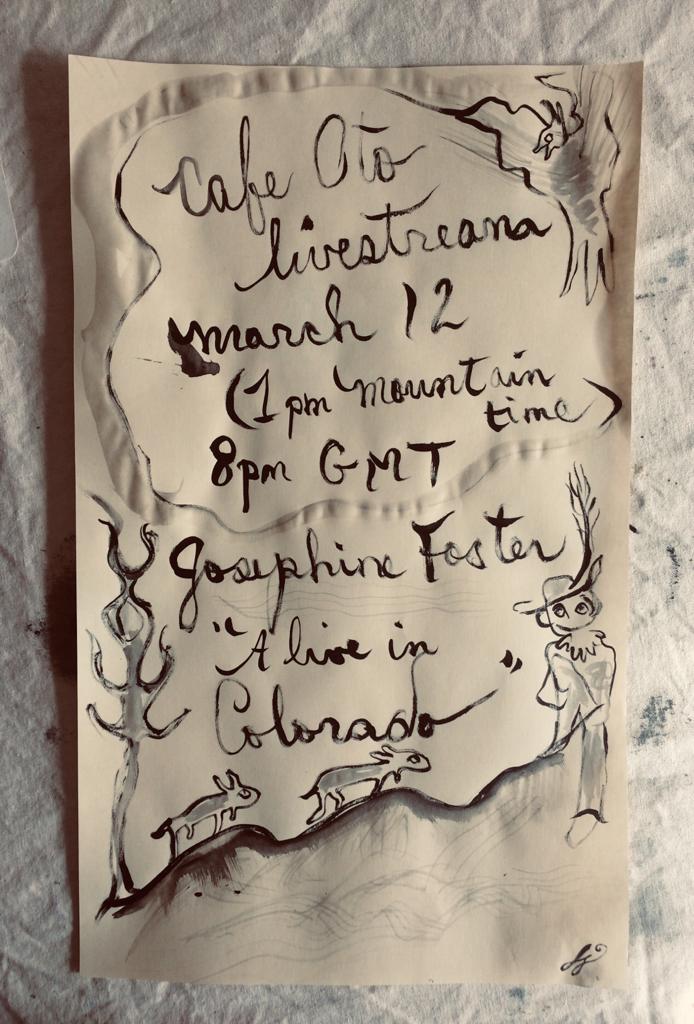 Cafe Oto
livestream
march 12
(1pm mountain
time)
8pm GMT
Josephine Foster
"Alive in
Colorado"